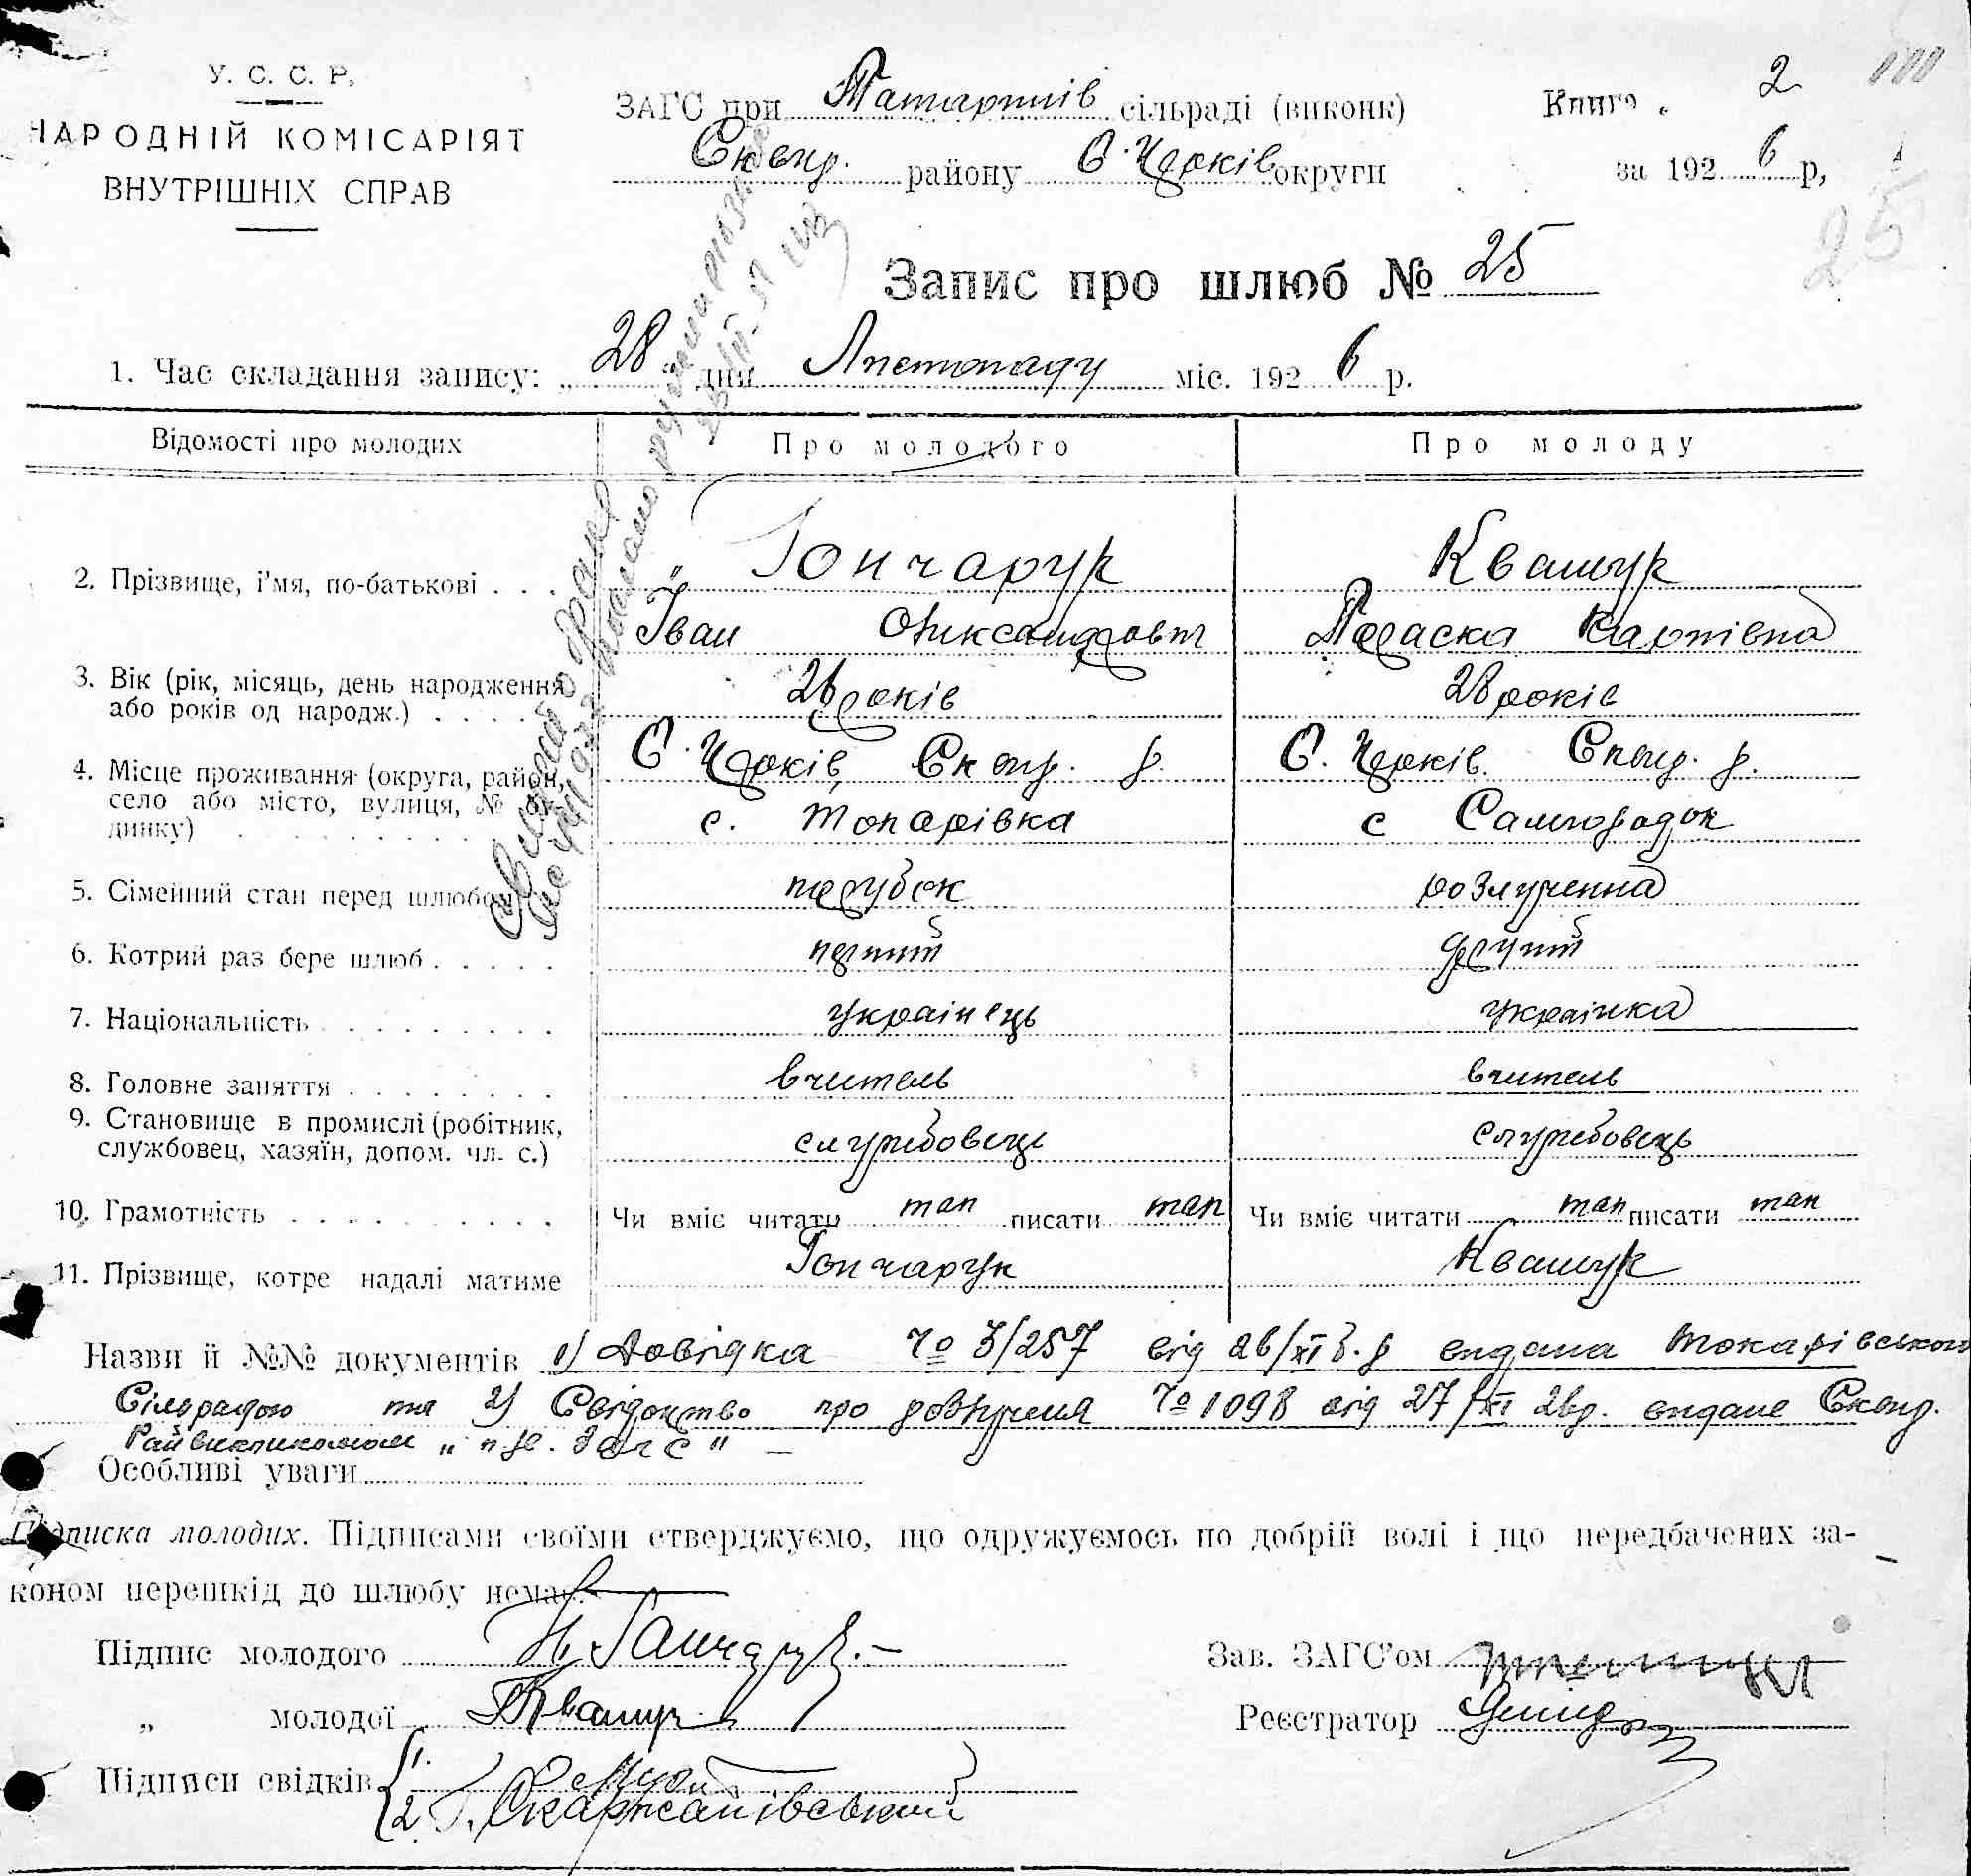 У. С. С. Р.
НАРОДНІЙ КОМІСАРІЯТ
ВНУТРІШНІХ СПРАВ
ЗАГС при сільраді (виконк)
Сквир. району Б. Церків округи
Книга 2
за 1926 р,
25
Запис про шлюб № 25
1. Час складання запису: „28" дня Листопаду міс. 1926 р.
Відомості про молодих Про молодого Про молоду
2. Прізвище, і'мя, по-батькові . . . Гончарук Квашук
Іван Олександрович Параска Карпівна
3. Вік (рік, місяць, день народження або років од народж.) 28 років
4. Місце проживання (округа, район, село або місто, вулиця, № будинку) Б. Церків, Сквир. р. Б. Церків. Сквир. р.
с. Токарівка с Самгородок
5. Сімейний стан перед шлюбом парубок розлученна
6. Котрий раз бере шлюб . . . . . перший другий
7. Національність українець українка
8. Головне заняття вчитель вчитель
9. Становище в промислі (робітник, службовец, хазяїн, допом. чл. с.) службовець службовець
10. Грамотність Чи вміє читати так писати так Чи вміє читати так писати так
11. Прізвище, котре надалі матиме Гончарук Квашук
Назви й №№ документів 1) Довідка № 3/257 від 26/XI б. р видана Токарівською
Сільрадою та 2) Свідоцтво про розлучення № 1098 від 27/XI 26р. видане Сквир.
Райвиконкомом
Особливі уваги
Підписка молодих. Підписами своїми стверджуємо, що одружуємось по добрій волі і що передбачених за-
коном перешкід до шлюбу немає.
Підпис молодого
„ молодої Квашук
Зав. ЗАГС'ом
Реєстратор
Підписи свідків 1.
2.